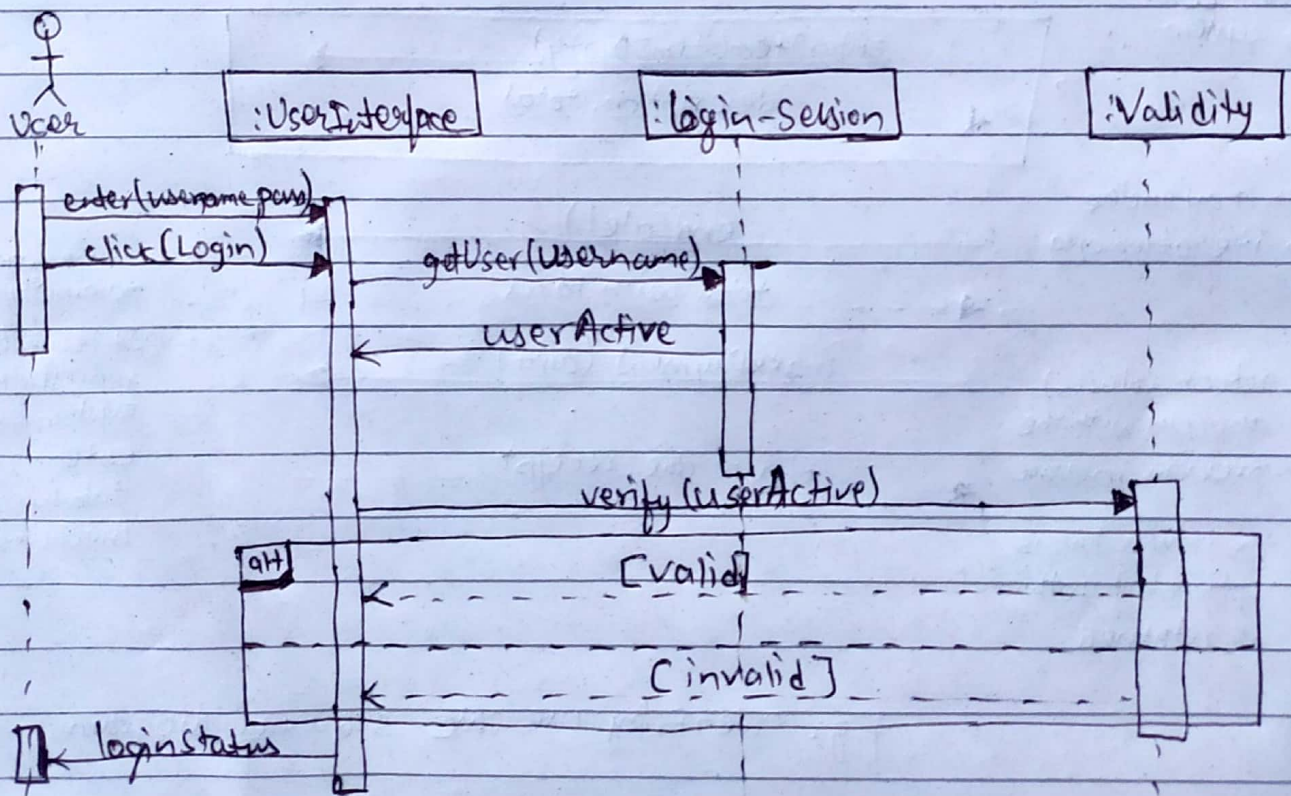 User
:UserInterface
:Login-Session
:Validity
enter(username pass)
click(Login)
getUser(Username)
userActive
verify(userActive)
alt
[valid]
[invalid]
loginStatus